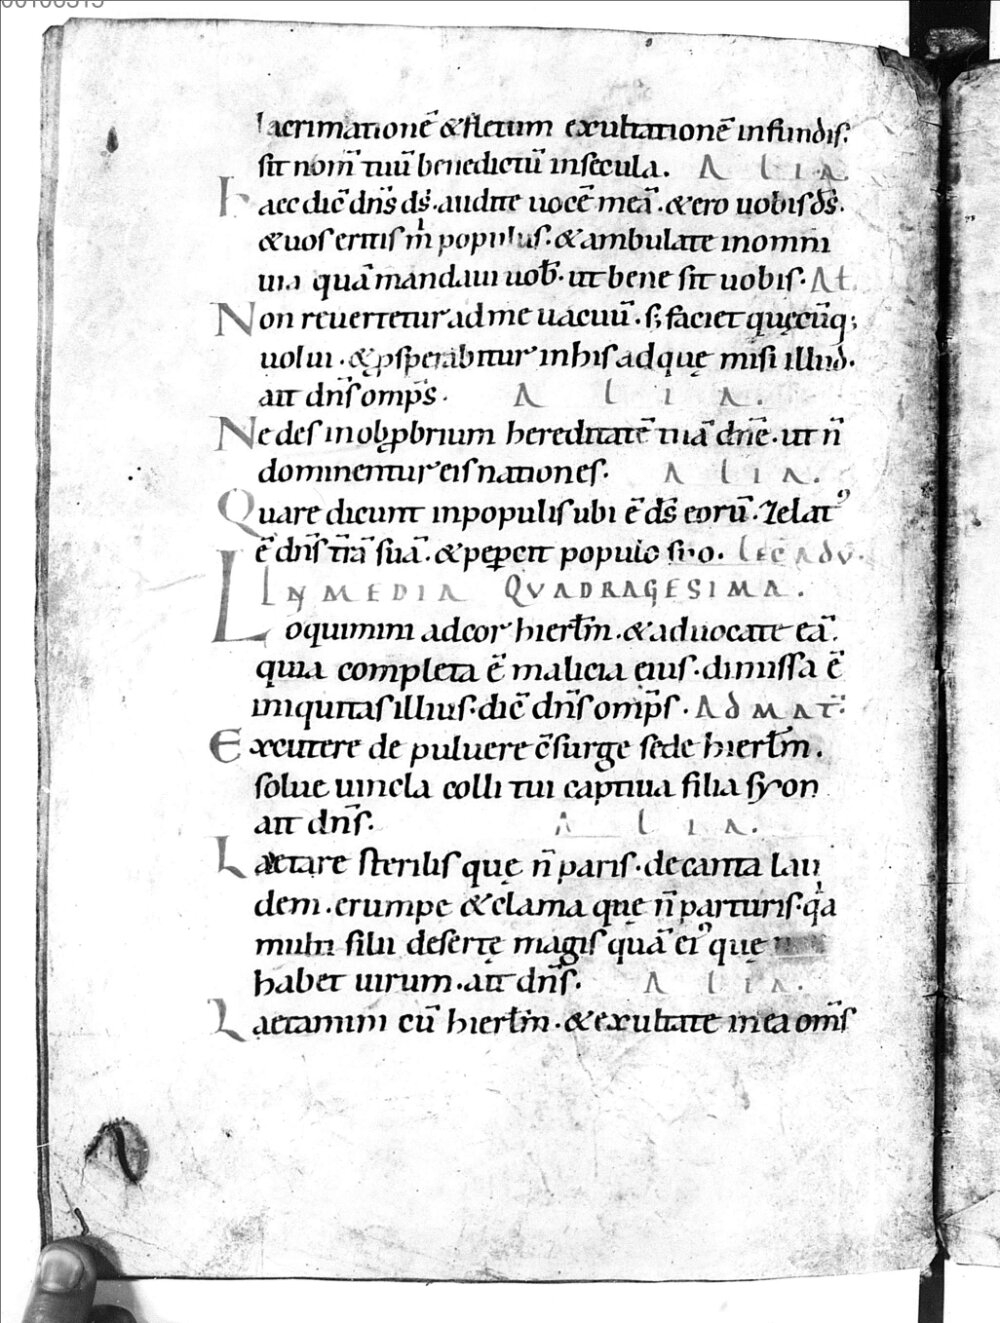 lacrimationē &fletum exultationē infundis.
sit nom̄ tuū benedictū insecula. A L I A.
haec dic̄ dn̄s ds̄. audite uocē meā. &ero uobis ds̄.
&uos eritis m̄ populus. &ambulate inomni
uia quā mandaui uob̄. ut bene sit uobis. At.
Non reuertetur adme uacuū. s; faciet quęcūq;
uolui. &ꝓsperabitur inhis adque misi illud.
ait dn̄s omp̄s. A L I A.
Ne des inobꝓbrium hereditatē tuā dn̄e. ut n̄
dominentur eis nationes. A L I A.
Quare dicunt inpopulis ubi ē ds̄ eorū. Zelatꝰ
ē dn̄s tr̄ā suā. &peꝑcit populo suo. Lec̄ adu.
IN MEDIA QVADRAGESIMA.
Loquimini adcor hierl̄m. &aduocate eā.
quia completa ē malicia eius. dimissa ē
iniquitas illius. dic̄ dn̄s omp̄s. AD MAT̄.
Excutere de puluere c̄surge sede hierl̄m.
solue uincla colli tui captiua filia syon
ait dn̄s. A L I A.
Laetare sterilis quę n̄ paris. decanta lau
dem. erumpe &clama quę n̄ parturis. qa
multi filii desertę magis quā eiꝰ quę
habet uirum. ait dn̄s. A L I A.
Laetamini cū hierl̄m. &exultate inea om̄s